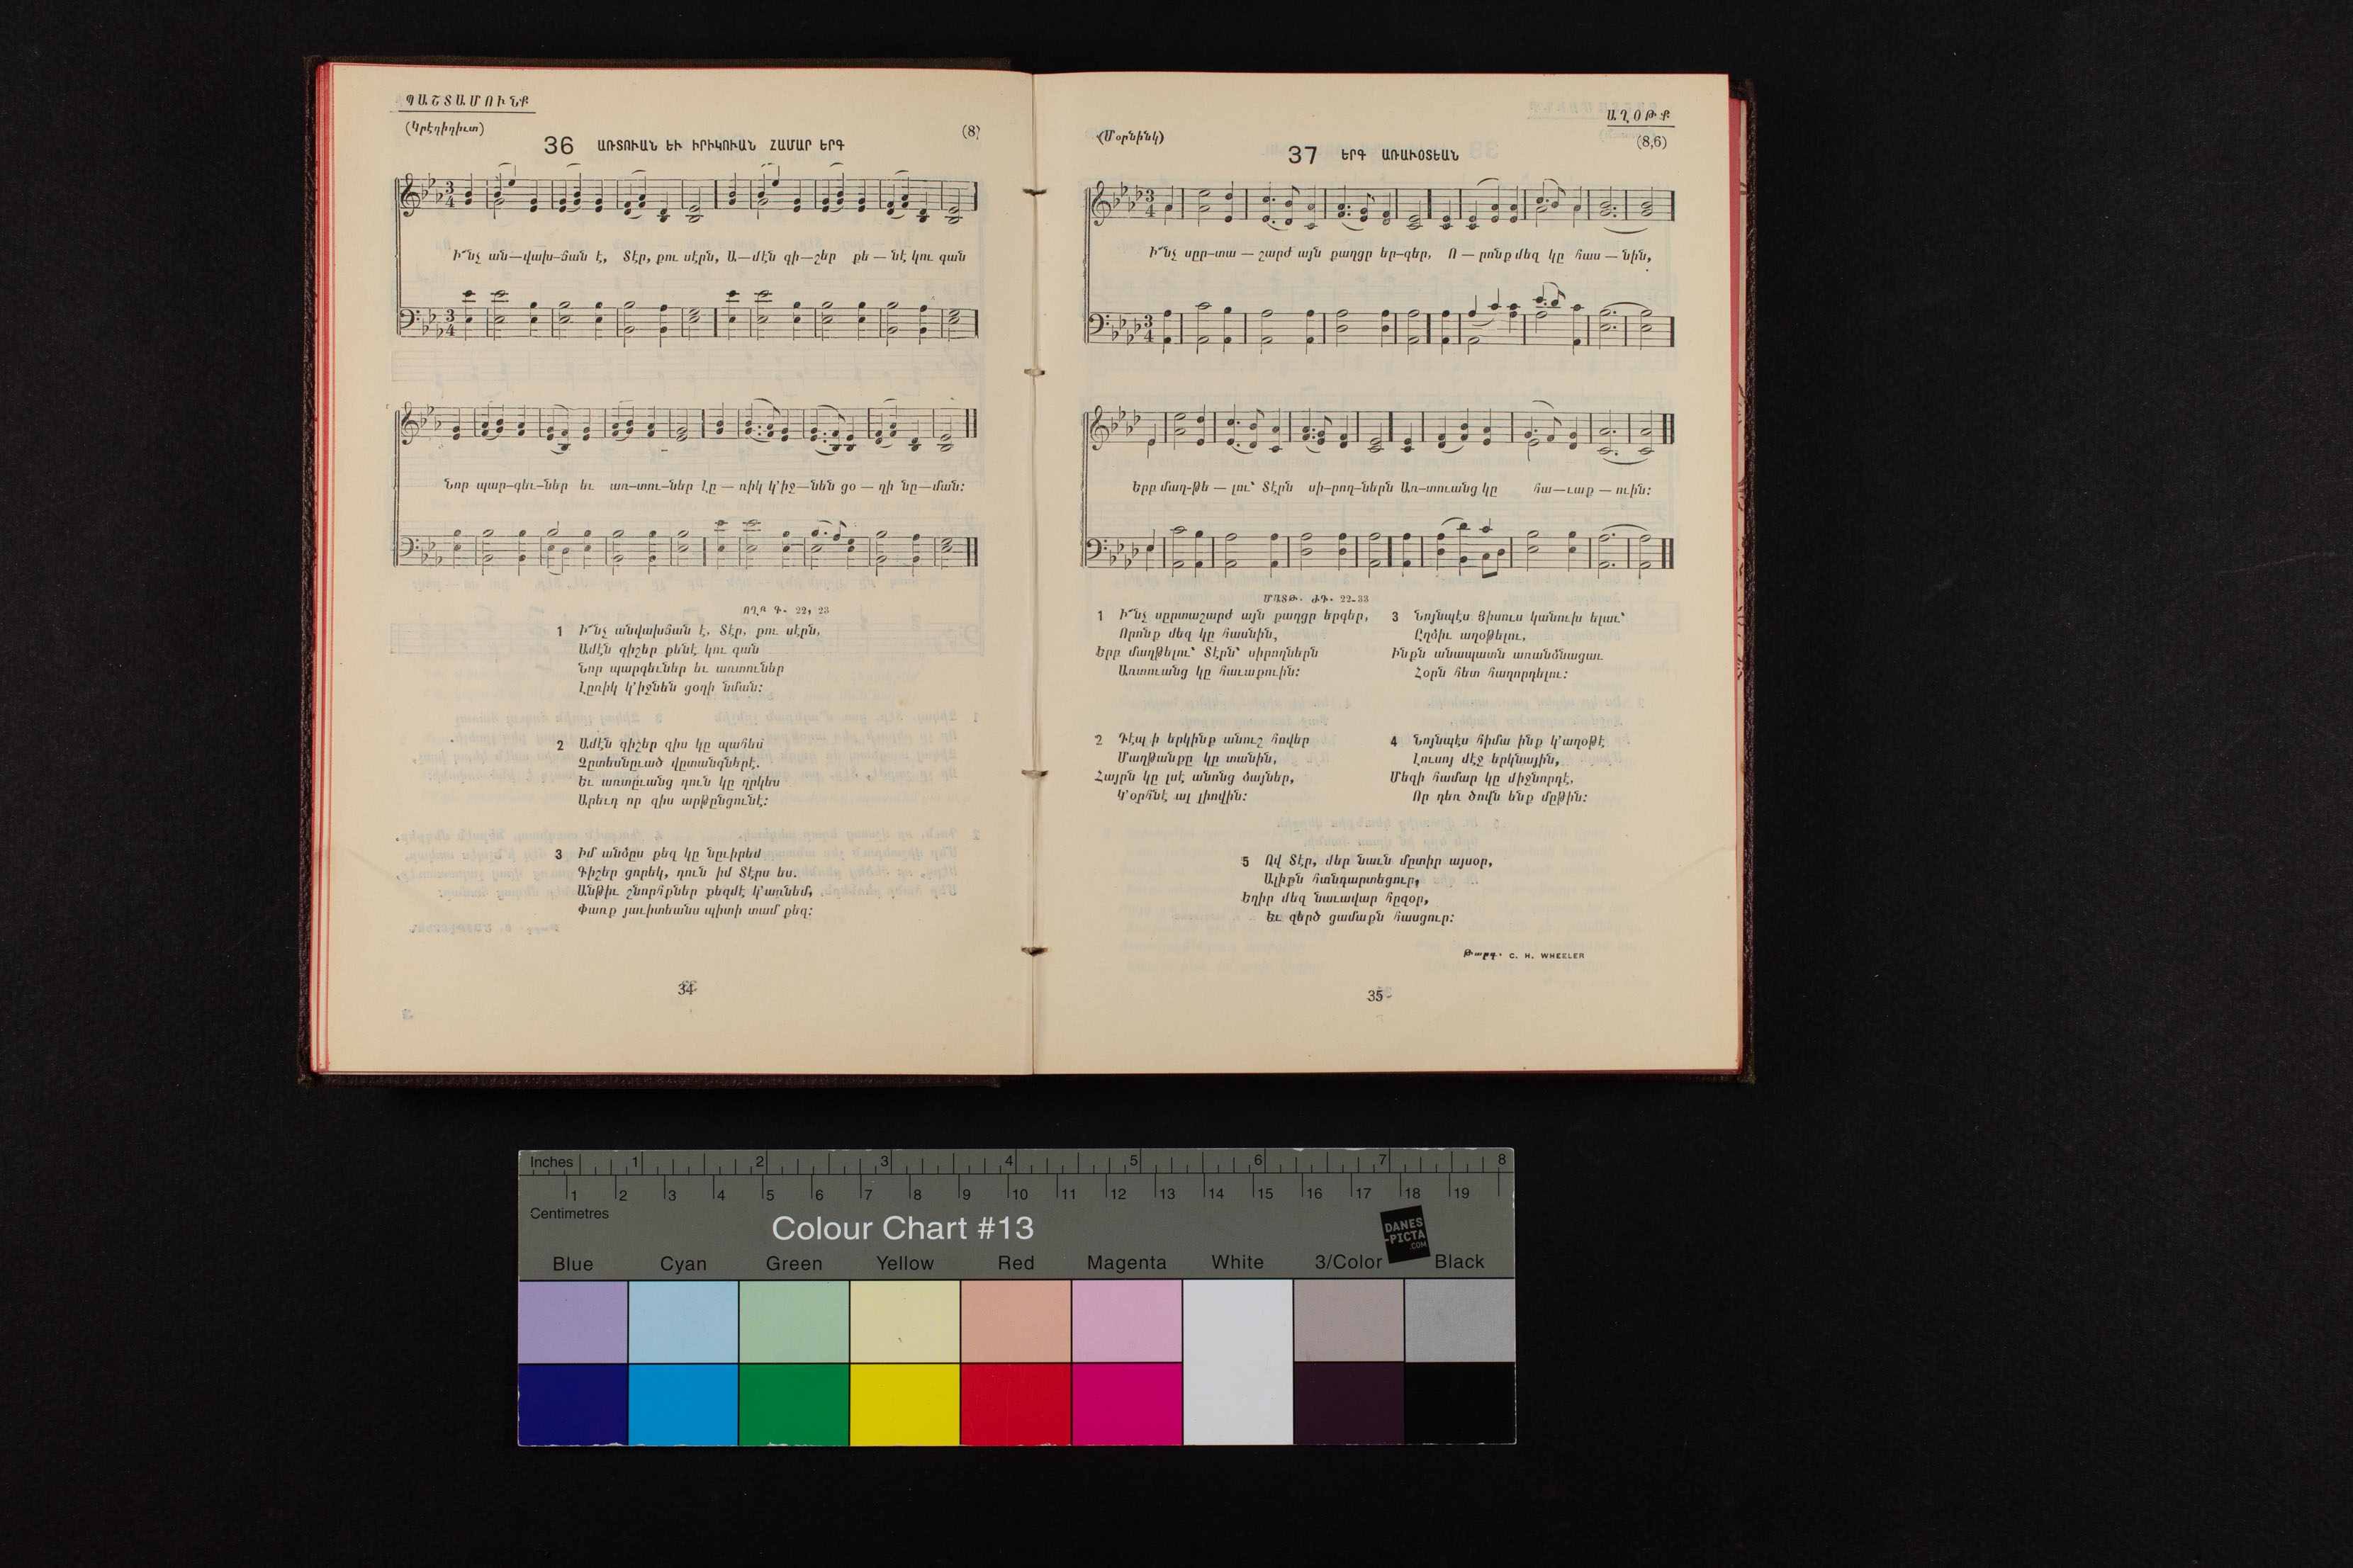 ՊԱՇՏԱՄՈՒՆՔ
(Կրէդիդիւտ)
(8)
36 ԱՌՏՈՒԱՆ ԵՒ ԻՐԻԿՈՒԱՆ ՀԱՄԱՐ ԵՐԳ
Ի՜նչ ան—վախ—ճան է, Տէր, քու սէրն, Ա—մէն գի—շեր քե — նէ կու գան
Նոր պար—գեւ—ներ եւ առ—տու—ներ Լը — ռիկ կ'իջ—նեն ցօ — ղի նը—ման:
ՈՂԲ Գ. 22, 23
1 Ի՜նչ անվախճան է, Տէր, քու սէրն,
Ամէն գիշեր քենէ կու գան
Նոր պարգեւներ եւ առտուներ
Լըռիկ կ'իջնեն ցօղի նման:
2 Ամէն գիշեր զիս կը պահես
Չըտեսնըւած վըտանգներէ.
Եւ առտըւանց դուն կը ղրկես
Արեւդ որ զիս արթընցունէ:
3 Իմ անձըս քեզ կը նըւիրեմ
Գիշեր ցորեկ, դուն իմ Տէրս ես.
Անթիւ շնորհքներ քեզմէ կ'առնեմ,
Փառք յաւիտեանս պիտի տամ քեզ:
34
ԱՂՕԹՔ
(Մօրնինկ)
(8,6)
37 ԵՐԳ ԱՌԱՒՕՏԵԱՆ
Ի՜նչ սըր—տա — շարժ այն քաղցր եր—գեր, Ո — րոնք մեզ կը հաս — նին,
Երբ մաղ-թե — լու՝ Տէրն սի—րող—ներն Առ—տուանց կը հա—ւաք — ուին:
ՄԱՏԹ. ԺԴ. 22-33
1 Ի՜նչ սըրտաշարժ այն քաղցր երգեր,
Որոնք մեզ կը հասնին,
Երբ մաղթելու՝ Տէրն՝ սիրողներն
Առտուանց կը հաւաքուին:
2 Դէպ ի երկինք անուշ հովեր
Մաղթանքը կը տանին,
Հայրն կը լսէ անոնց ձայներ,
Կ'օրհնէ ալ լիովին:
3 Նոյնպէս Յիսուս կանուխ ելաւ՝
Ըղձիւ աղօթելու,
Ինքն անապատն առանձնացաւ
Հօրն հետ հաղորդելու:
4 Նոյնպէս հիմա ինք կ'աղօթէ
Լուսոյ մէջ երկնային,
Մեզի համար կը միջնորդէ,
Որ դեռ ծովն ենք մըթին:
5 Ով Տէր, մեր նաւն մըտիր այսօր,
Ալիքն հանդարտեցուր,
Եղիր մեզ նաւավար հըզօր,
Եւ զերծ ցամաքն հասցուր:
Թարգ. C. H. WHEELER
35
Inches 1 2 3 4 5 6 7 8
1 2 3 4 5 6 7 8 9 10 11 12 13 14 15 16 17 18 19
Centimetres
Colour Chart #13
DANES
-PICTA
.COM
Blue Cyan Green Yellow Red Magenta White 3/Color Black